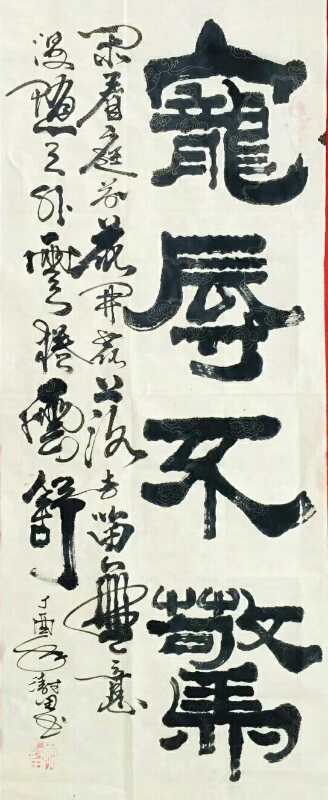 寵辱不驚
闲看庭前花開花落去留無意
漫隨天外雲捲雲舒
丁酉